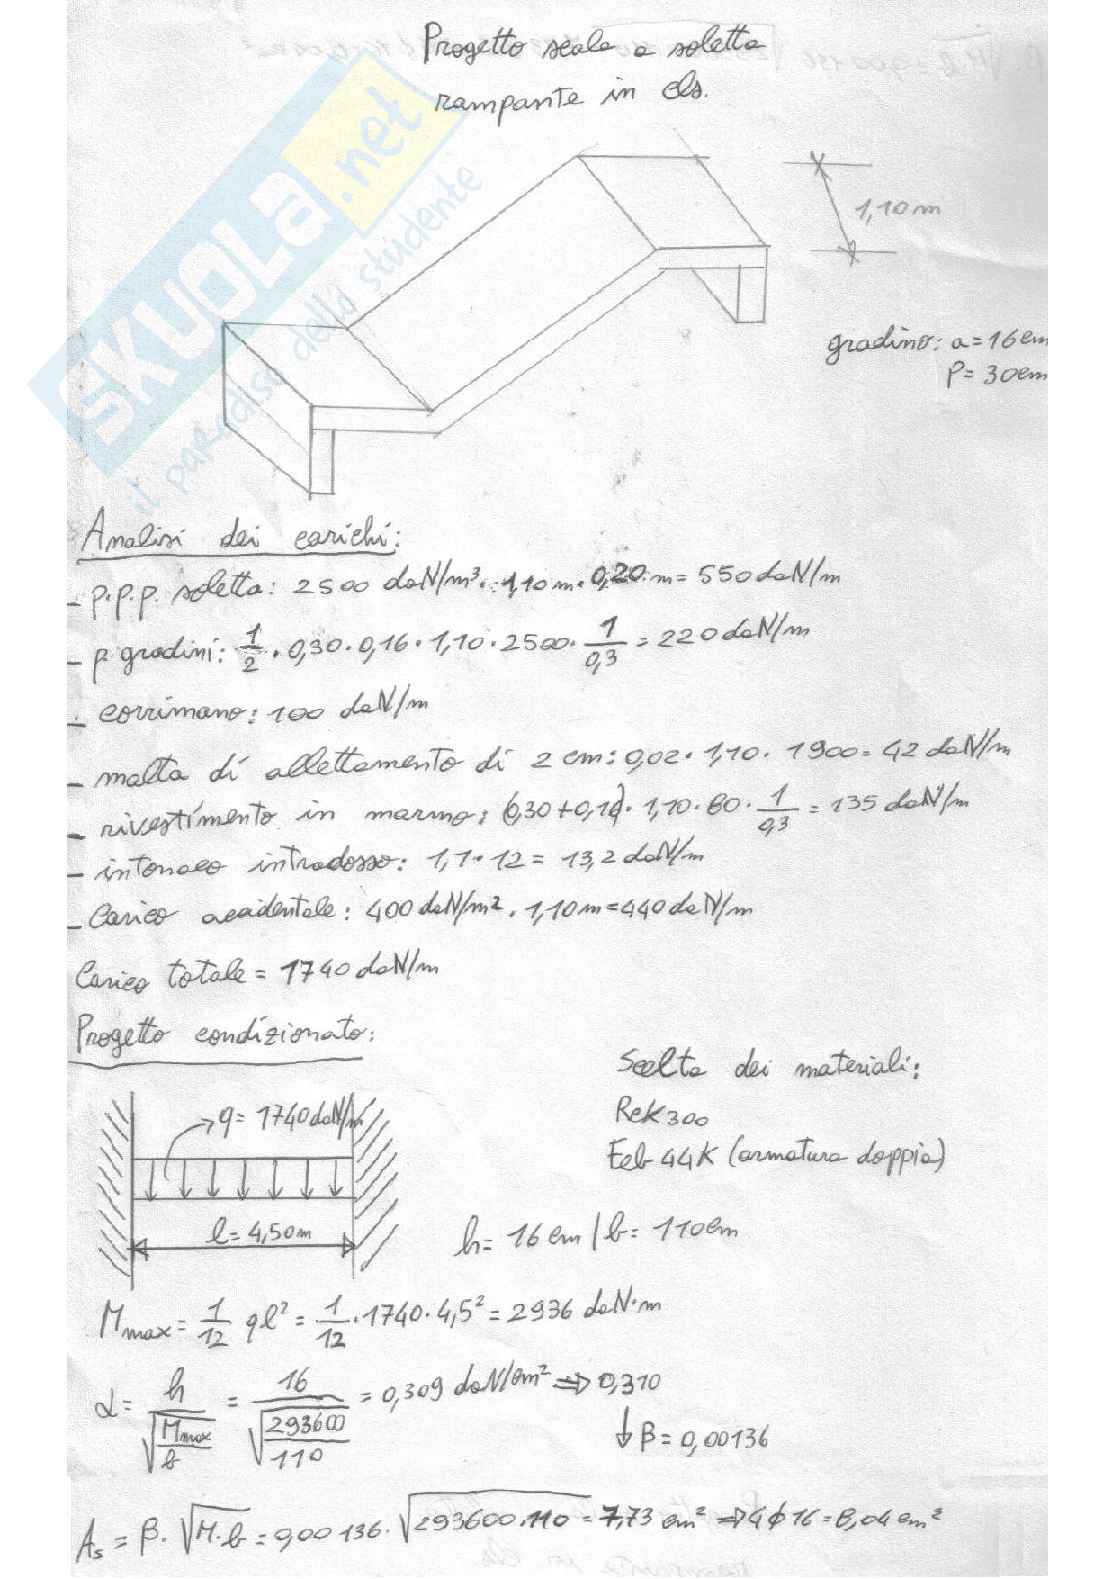 Progetto scala a soletta
rampante in cls.
SKUOLA.net
il paradiso dello studente
1,10 m
gradino: a = 16 cm
P = 30 cm
Analisi dei carichi:
- p.p.p. soletta: 2500 daN/m³ · 1,10 m · 0,20 m = 550 daN/m
- p gradini: 1/2 · 0,30 · 0,16 · 1,10 · 2500 · 1/0,3 = 220 daN/m
- corrimano: 100 daN/m
- malta di allettamento di 2 cm: 0,02 · 1,10 · 1900 = 42 daN/m
- rivestimento in marmo: (0,30+0,16) · 1,10 · 80 · 1/0,3 = 135 daN/m
- intonaco intradosso: 1,1 · 12 = 13,2 daN/m
- Carico accidentale: 400 daN/m² · 1,10 m = 440 daN/m
Carico totale = 1740 daN/m
Progetto condizionato:
Scelta dei materiali:
q = 1740 daN/m
Rck 300
Feb 44K (armatura doppia)
l = 4,50 m
h = 16 cm / b = 110 cm
Mmax = 1/12 ql² = 1/12 · 1740 · 4,5² = 2936 daN·m
α = h/√(Mmax/b) = 16/√(293600/110) = 0,309 daN/cm² ⇒ 0,310
↓ β = 0,00136
As = β · √M·b = 0,00136 · √293600·110 = 7,73 cm² ⇒ 4ϕ16 = 8,04 cm²